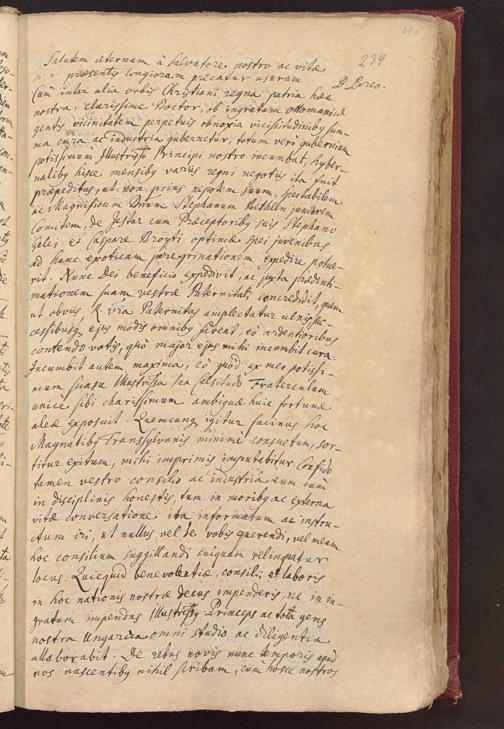 234
Salutem æternam à Salvatore nostro ac vitæ
præsentis longiorem precatur usuram
D. Pareo.
Cùm inter alia orbis Christiani regna patria hæc
nostra, clarissime Doctor, ob ingratam Ottomanicæ
gentis vicinitatem perpetuis obnoxia vicissitudinibq sum-
ma cura ac industria gubernetur, totum verò gubernium
potissimùm Illustrissō Principi nostro incumbat, hyber-
nalibq hisce mensibq varijs regni negotijs ita fuit
præpeditus, ut non prius nepotem suum, spectabilem
ac Magnificum Dnum Stephanum Bethlen juniorem
Comitem, de Iktar cum Præceptoribq suis Stephano
Gelei et Caspare Broyti optimæ spei juvenibus
ad hanc exoticam peregrinationem expedire potue-
rit. Nunc Dei beneficio expedivit, ac juxta prædesti-
mationem suam vestræ Paternitati concredidit, quem
ut obvijs V. vra Paternitas amplectatur ulnis, suc-
cessibusq ejus modis omnibq faveat, eò ardentioribus
contendo votis, quò major ejus mihi incumbit cura.
Incumbit autem maxima, eò quòd ex meo potissi-
mum suasu Illustrissa sua Celsitudo Fraterculum
unicè sibi charissimum ambiguæ huic fortunæ
aleæ exposuit. Quemcunq igitur facinus hoc
Magnatibq Transylvanis minimè consuetum, sor-
titur exitum, mihi imprimis imputabitur. Confido
tamen vestro consilio ac industria eum cùm
in disciplinis honestis, tum in moribq ac externa
vitæ conversatione ita informatum ac instru-
ctum iri, ut nullus vel de vobis querendi, vel meum
hoc consilium suggillandi cuiquam relinquatur
locus. Quicquid benevolentiæ, consilij et laboris
in hoc nationis nostræ decus impenderis, ne in in-
gratum impendas Illustrissq Princeps ac tota gens
nostra Ungarica omni studio ac diligentia
allaborabit. De rebus novis nunc temporis apud
nos nascentibq nihil scribam, cùm hosce nostros